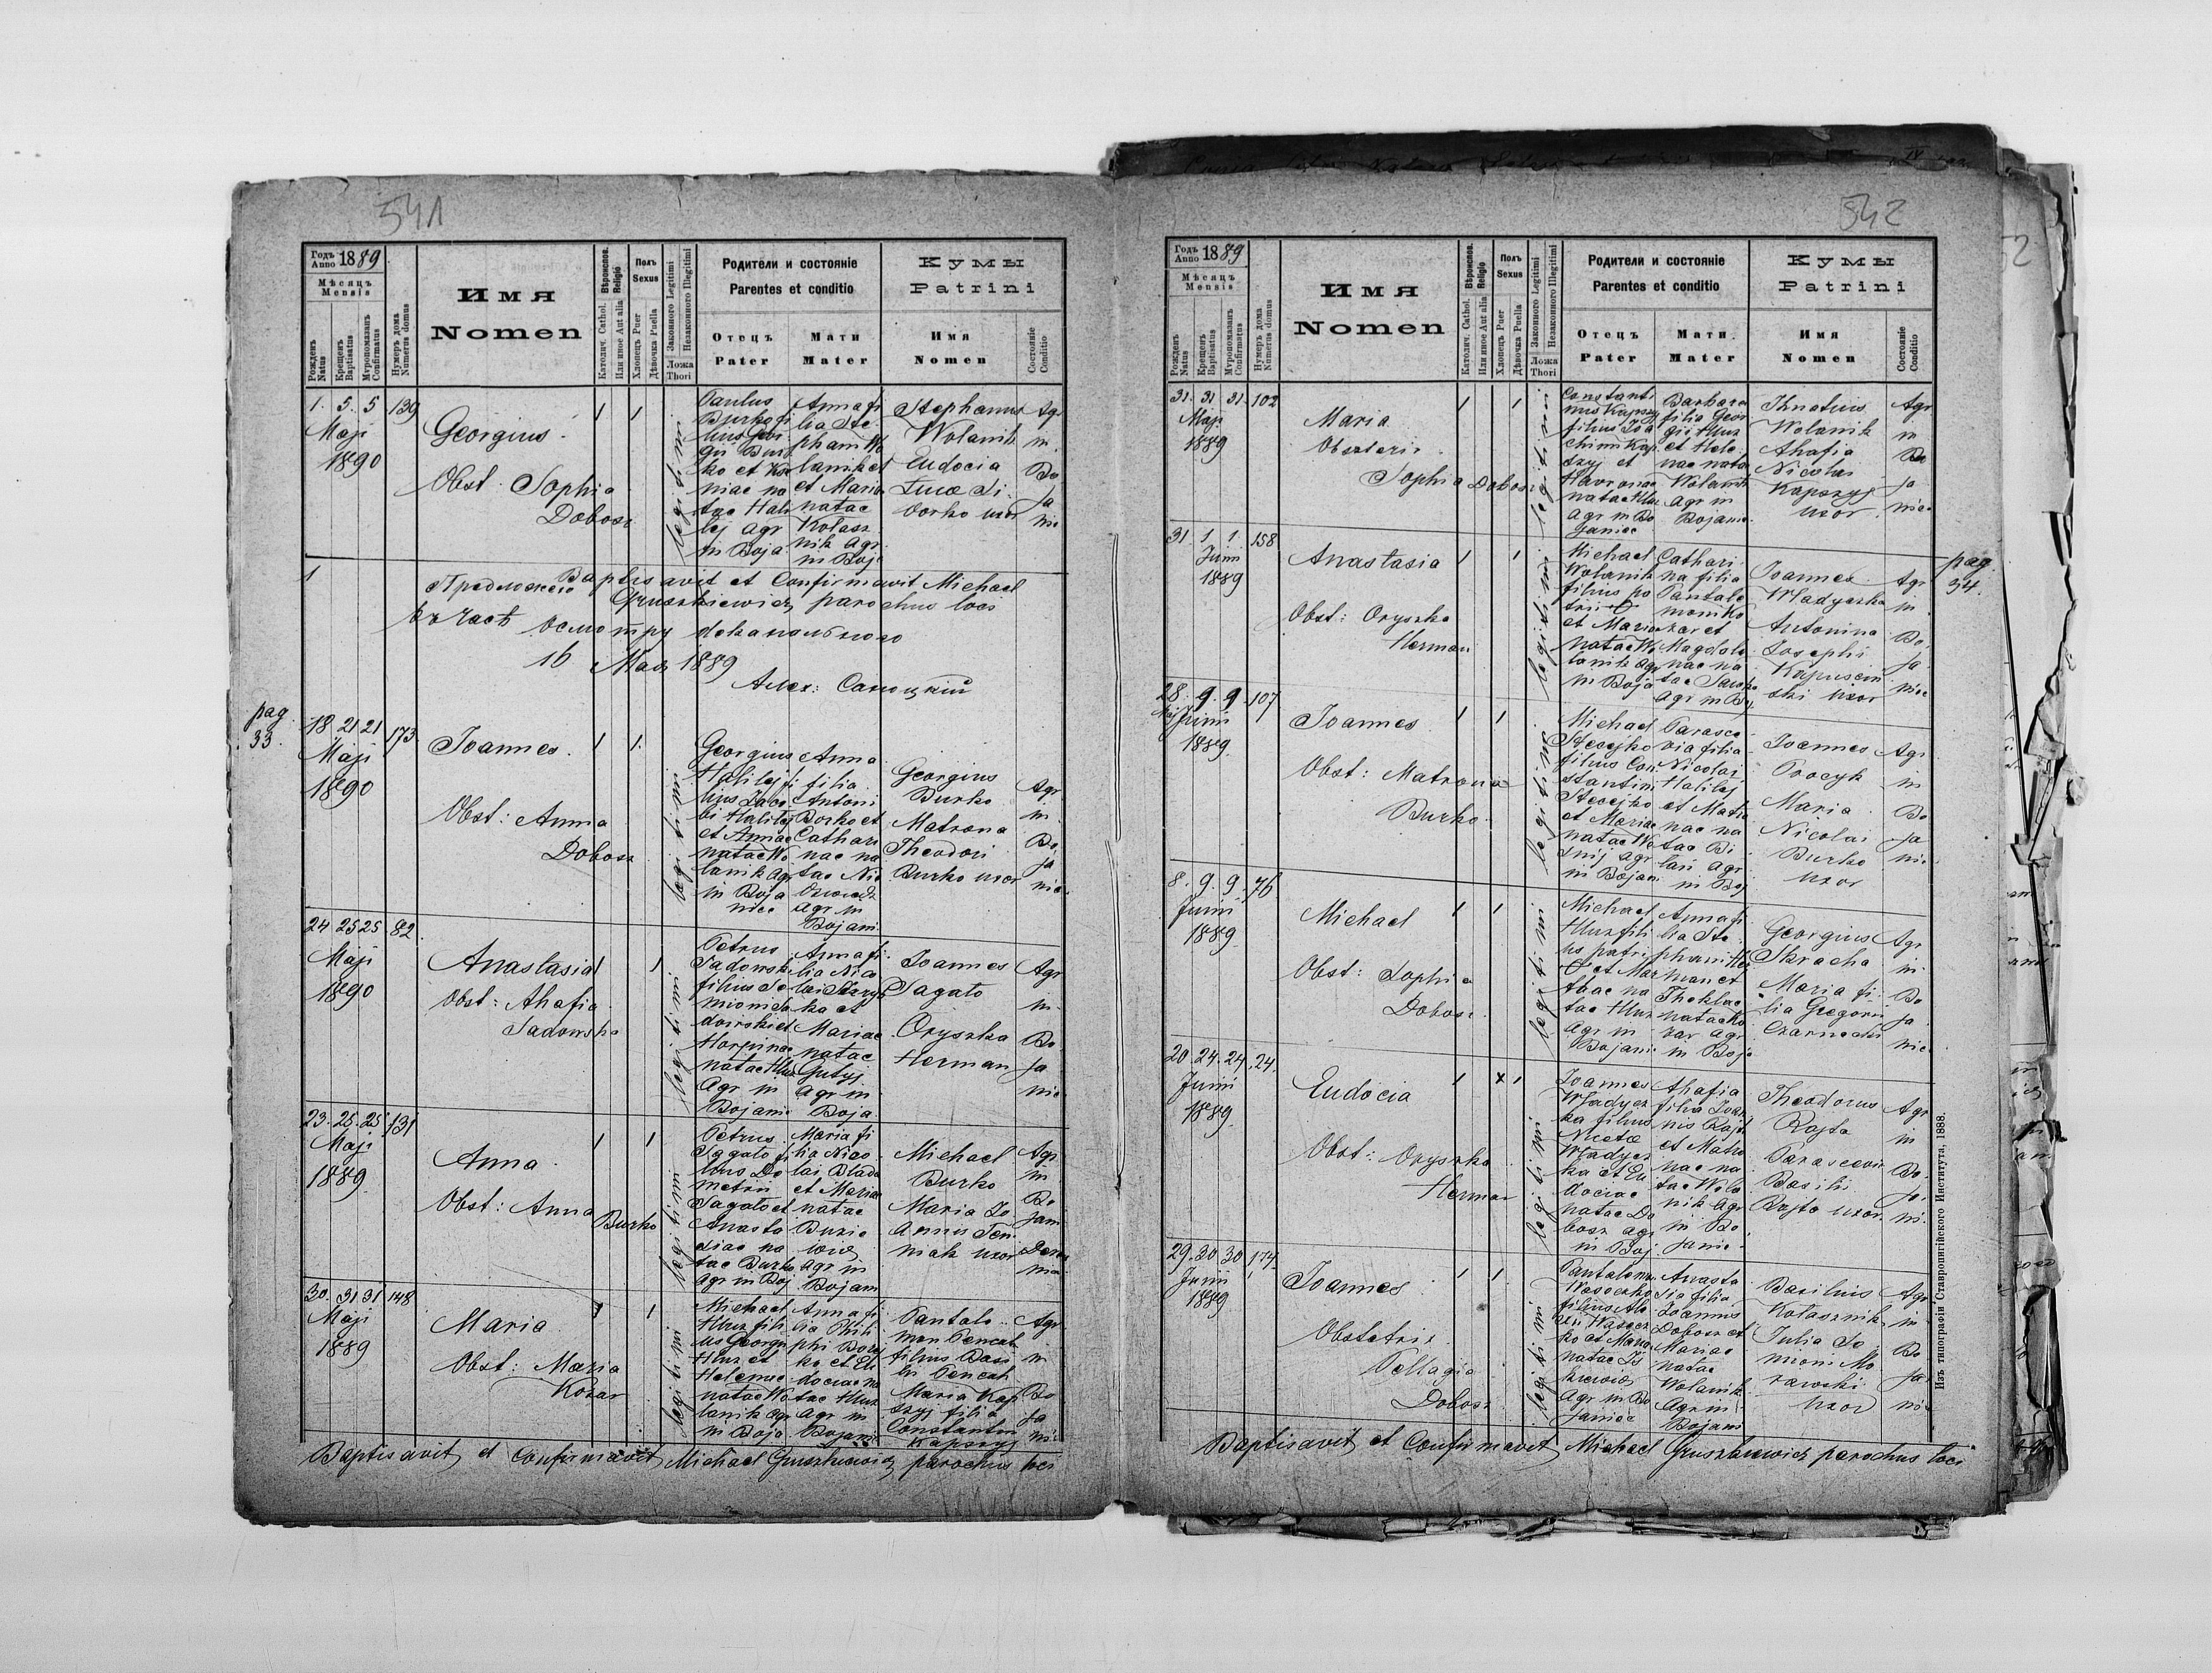 541
Годъ Anno 1889
Мѣсяцъ Mensis
Рожденъ Natus
Крещенъ Baptisatus
Мѵропомазанъ Confirmatus
Нумеръ дома Numerus domus
Имя
Nomen
Вѣроиспов. Religio
Католич. Cathol.
Или иное Aut alia
Полъ
Sexus
Хлопецъ Puer
Дѣвочка Puella
Законного Legitimi
Незаконного Illegitimi
Ложа
Thori
Родители и состояніе
Parentes et conditio
Отецъ
Pater
Мати
Mater
Кумы
Patrini
Имя
Nomen
Состояніе
Conditio
1. 5. 5 139
Maji
1890
Georgius
Obst. Sophia
Dobosz
1 1
legitimi
Paulus
Burko fi
lius Geor
gii Bur
ko et
niae na
tae Hali
lej agr
in Boja
Anna fi
lia Ste
phani Wo
lanik et
et Maria
natae
Kolasz
nik agr
in Boj
Stephanus
Wolanik
Eudocia
Lucae
uxor
Agr
in
Bo
ja
nie
1
Baptisavit et Confirmavit Michael
Gruszkiewicz parochus loci
Предложено
въ часѣ осмотру деканального
16 Мая 1889
Алех:
pag
33.
18 21 21 173
Maji
1890
Joannes.
Obst: Anna
Dobosz
1 1.
legitimi
Georgius
Halilej fi
lius Jaco
bi Halilej
et Annae
natae Wo
lanik agr
in Boja
niec
Anna
filia
Antoni
Borko et
Cathari
nae na
tae
agr in
Bojani
Georgius
Burko
Matrona
Theodori
Burko uxor
Agr
in
Bo
ja
nie
24 25 25 82
Maji
1890
Anastasia
Obst: Ahafia
Sadowska
1 1
legitimi
Petrus
Sadowski
filius Si
mionis Sa
dowski et
Horpinae
natae Huz
agr in
Bojani
Anna fi
lia Nico
lai
ko et
Mariae
natae
Gutyj
agr in
Boja
Joannes
Sagato
Oryszka
Herman
Agr
in
Bo
ja
nie
23. 25. 25 131
Maji
1889
Anna
Obst: Anna
Burko
1 1
legitimi
Petrus
Sagato fi
lius De
metrii
Sagato et
Anasta
siae na
tae Burko
agr in Boj
Maria fi
lia Nico
lai
et Mariae
natae
agr in
Bojani
Michael
Burko
Maria Jo
annis
uxor
Agr
in
Bo
jani
30. 31 31 148
Maji
1889
Maria
Obst: Maria
Kozar
1 1
legitimi
Michael
Huz fili
us Georgi
Huz et
Helenae
natae Wo
lanik agr
in Boja
Anna fi
lia Phili
phi
ko et Eu
dociae na
tae Huz
agr in
Bojani
Pantale
mon Pencak
filius Basi
lii Pencak
Maria Kap
szyj filia
Constantin
Kapszyj
Agr
in
Bo
ja
ni
Baptisavit et Confirmavit Michael Gruszkiewicz parochus loci
542
Годъ Anno 1889
Мѣсяцъ
Mensis
Рожденъ Natus
Крещенъ Baptisatus
Мѵропомазанъ Confirmatus
Нумеръ дома Numerus domus
Имя
Nomen
Вѣроиспов. Religio
Католич. Cathol.
Или иное Aut alia
Полъ
Sexus
Хлопецъ Puer
Дѣвочка Puella
Законного Legitimi
Незаконного Illegitimi
Ложа
Thori
Родители и состояніе
Parentes et conditio
Отецъ
Pater
Мати
Mater
Кумы
Patrini
Имя
Nomen
Состояніе
Conditio
31. 31 31. 102
Maji
1889
Maria
Obsteteri
Sophia Dobosz
1 1
legitimi
Constanti
nus Kapszyj
filius Joa
chimi Kap
szyj et
natae Huz
agr in Bo
janiec
Barbara
filia Geor
gii Huz
et Hele
nae natae
Wolanik
agr in
Bojanie
Ihnatius
Wolanik
Ahafia
Nicolai
Kapszyj
uxor
Agr
in
Bo
ja
niec
31. 1. 1. 158
Junii
1889
Anastasia
Obst: Oryszka
Herman
1 1
legitimi
Michael
Wolanik
filius pa
tris
et Maria
natae Wo
lanik agr
in Boja
Cathari
na filia
Pantale
moni Ko
zar et
Magdale
nae na
tae
agr in Bo
Joannes
Wladyczka
Antonina
Josephi
uxor
Agr
in
Bo
ja
nie
pag.
34.
28. 9. 9 107
Junii
1889.
Joannes
Obst: Matrona
Burko.
1 1
legitimi
Michael
Steczko
filius Con
stantini
Steczko
et Mariae
natae Wo
agr
in Bojani
Parasce
via filia
Nicolai
Halilej
et Matro
nae na
tae Bi
las agr
in Boj
Joannes
Procyk
Maria
Nicolai
Burko
uxor
Agr
in
Bo
ja
nie
8. 9. 9. 76
Junii
1889.
Michael
Obst: Sophia
Dobosz.
1 1
legitimi
Michael
Huz fili
us patris
et Mar
thae na
tae Huz
agr in
Bojani
Anna fi
lia Ste
phani Her
man et
Theklae
natae Ko
zar agr
in Boja
Georgius
Skracha
Maria fi
lia Gregorii
Czarnecki
Agr
in
Bo
ja
nie
20 24. 24. 24.
Junii
1889.
Eudocia
Obst: Oryszka
Herman
1 x 1
legitimi
Joannes
Wladycz
ka filius
Nicetae
Wladycz
ka et Eu
dociae
natae Do
bosz agr
in Boj
Ahafia
filia Joan
nis Rajta
et Matro
nae na
tae Wola
nik agr
in Bo
janie
Theodorus
Rajta
Parascevia
Basilii
Rajta uxor.
Agr
in
Bo
ja
ni.
29. 30 30 174
Junii
1889
Joannes
Obstetrix
Pellagia
Dobosz
1 1.
legitimi
Pantalemon
filius Ale
xii
ko et Maria
natae
agr in Bo
janiec
Anasta
sia filia
Joannis
Dobosz et
Mariae
natae
Wolanik
Agr in
Bojani
Basilius
Kolasznik
Julia Si
mioni Mo
rawski
uxor
Agr
in
Bo
ja
nie
Baptisavit et Confirmavit Michael Gruszkiewicz parochus loci
Изъ типографіи Ставропигійского Института, 1888.